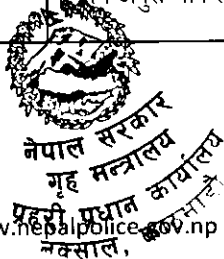 नेपाल सरकार
गृह मन्त्रालय
प्रहरी प्रधान कार्यालय
w.nepalpolice.gov.np
नक्साल,